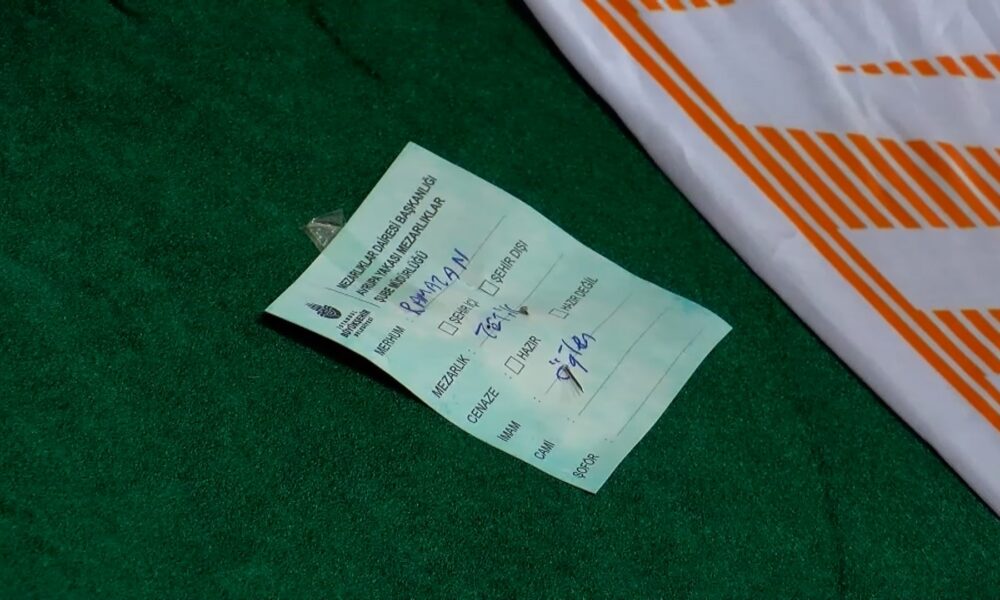 MEZARLIKLAR DAİRESİ BAŞKANLIĞI
AVRUPA YAKASI MEZARLIKLAR
ŞUBE MÜDÜRLÜĞÜ
İSTANBUL
BÜYÜKŞEHİR
BELEDİYESİ
MERHUM : RAMAZAN
ŞEHİR İÇİ ŞEHİR DIŞI
MEZARLIK :
CENAZE : HAZIR HAZIR DEĞİL
İMAM
Öğlen
CAMİ
ŞOFÖR